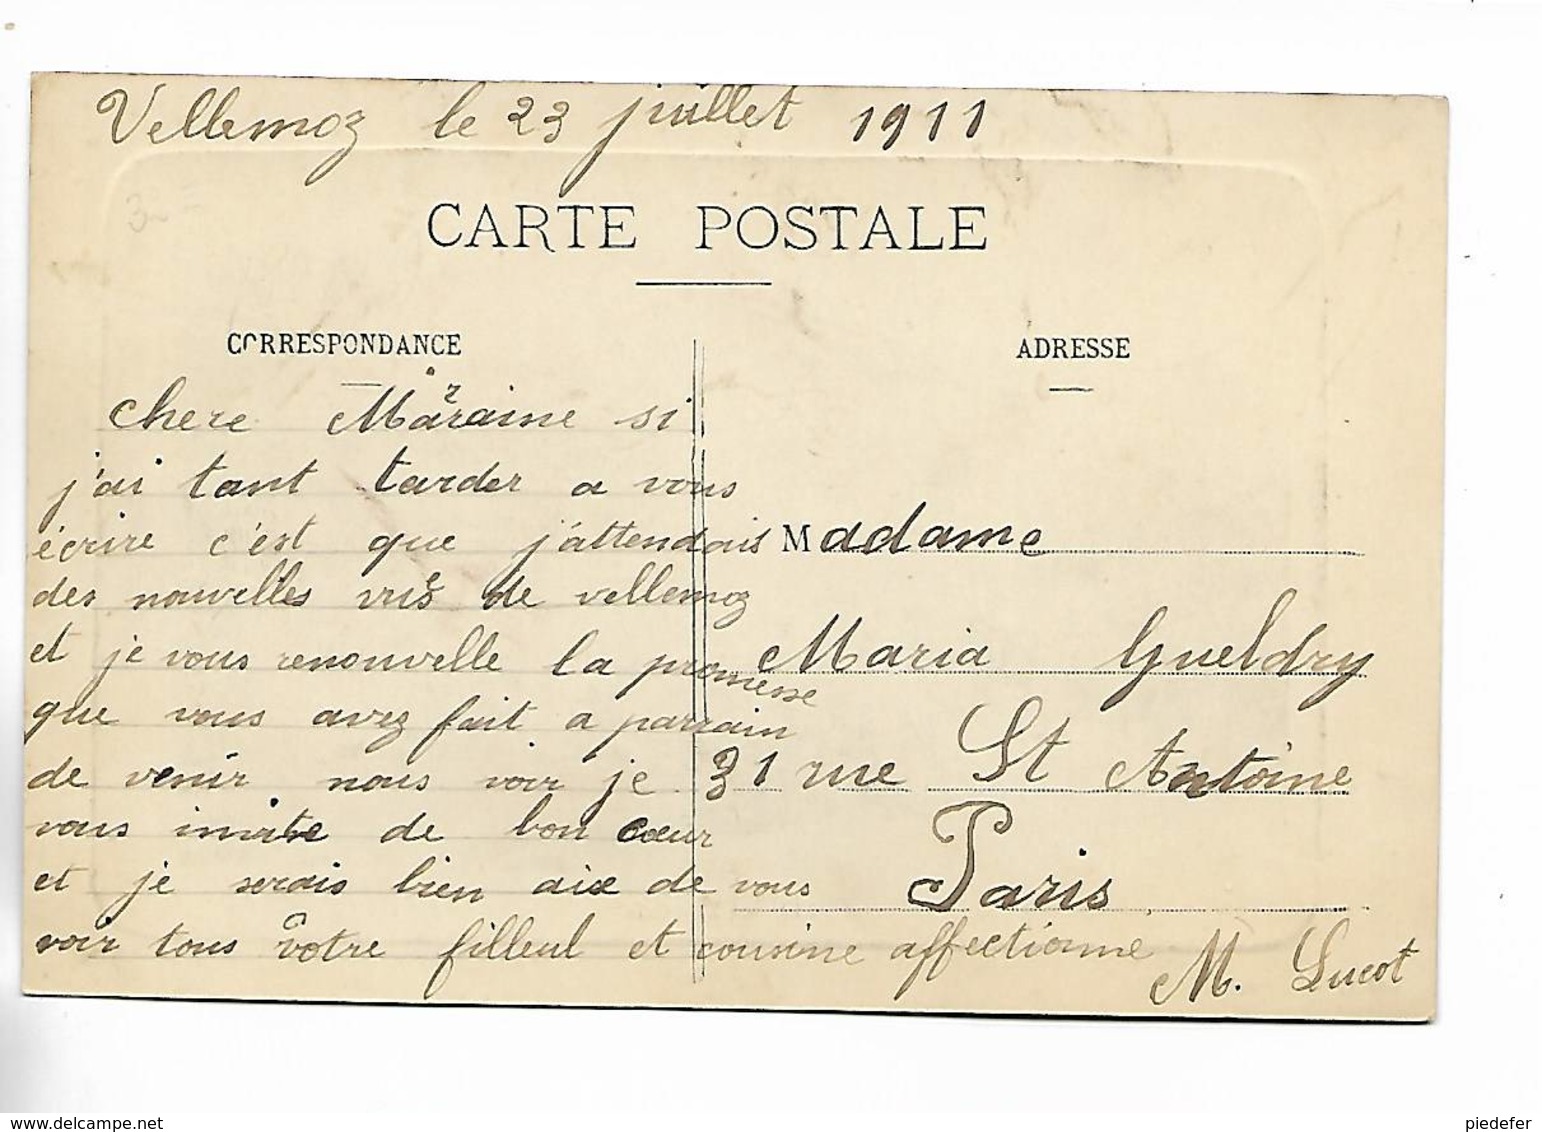 Vellemoz le 23 juillet 1911
CARTE POSTALE
CORRESPONDANCE
chere Maraine si
j'ai tant tarder a vous
écrire c'est que j'attendais
des nouvelles de vellemoz
et je vous renouvelle la promesse
que vous avez fait a parrain
de venir nous voir je
vous invite de bon cœur
et je serais bien aix de vous
voir tous votre filleul et cousine affectionne
M. Lucot
ADRESSE
Madame
Maria Gueldry
31 rue St Antoine
Paris
www.delcampe.net
piedefer